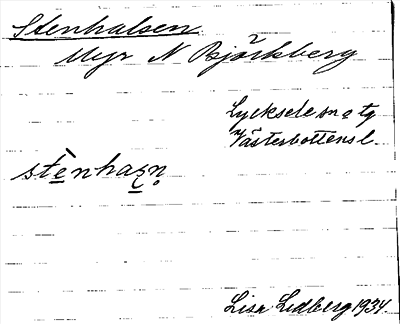 Stenhalsen
Myr N Björkberg
Lycksele sn o tg
Västerbottens l.
Lisa Lidberg 1934.